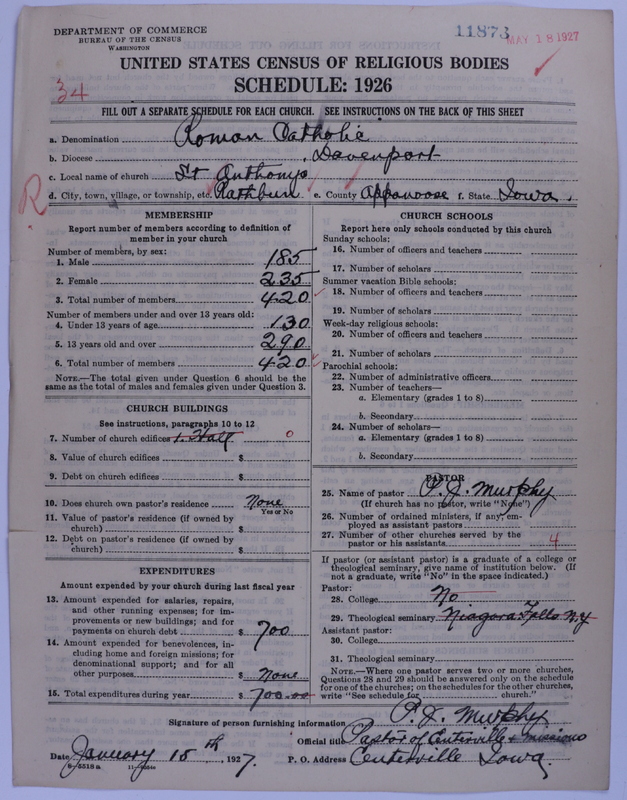 DEPARTMENT OF COMMERCE
BUREAU OF THE CENSUS
WASHINGTON
11873
MAY 18 1927
UNITED STATES CENSUS OF RELIGIOUS BODIES
SCHEDULE: 1926
34
FILL OUT A SEPARATE SCHEDULE FOR EACH CHURCH. SEE INSTRUCTIONS ON THE BACK OF THIS SHEET
a. Denomination Roman Catholic
b. Diocese Davenport
c. Local name of church St Anthonys
d. City, town, village, or township, etc. Rathbun e. County Appanoose f. State Iowa.
R
MEMBERSHIP
Report number of members according to definition of
member in your church
Number of members, by sex:
1. Male 185
2. Female 235
3. Total number of members 420
Number of members under and over 13 years old:
4. Under 13 years of age 130
5. 13 years old and over 290
6. Total number of members 420
NOTE.—The total given under Question 6 should be the
same as the total of males and females given under Question 3.
CHURCH BUILDINGS
See instructions, paragraphs 10 to 12
7. Number of church edifices 1. Hall 0
8. Value of church edifices $
9. Debt on church edifices $
10. Does church own pastor's residence None
Yes or No
11. Value of pastor's residence (if owned by
church) $
12. Debt on pastor's residence (if owned by
church) $
EXPENDITURES
Amount expended by your church during last fiscal year
13. Amount expended for salaries, repairs,
and other running expenses; for im-
provements or new buildings; and for
payments on church debt $ 700
14. Amount expended for benevolences, in-
cluding home and foreign missions; for
denominational support; and for all
other purposes $ None
15. Total expenditures during year $ 700.00
CHURCH SCHOOLS
Report here only schools conducted by this church
Sunday schools:
16. Number of officers and teachers
17. Number of scholars
Summer vacation Bible schools:
18. Number of officers and teachers
19. Number of scholars
Week-day religious schools:
20. Number of officers and teachers
21. Number of scholars
Parochial schools:
22. Number of administrative officers
23. Number of teachers—
a. Elementary (grades 1 to 8)
b. Secondary
24. Number of scholars—
a. Elementary (grades 1 to 8)
b. Secondary
PASTOR
25. Name of pastor P. J. Murphy
(If church has no pastor, write "None")
26. Number of ordained ministers, if any, em-
ployed as assistant pastors
27. Number of other churches served by the
pastor or his assistants 4
If pastor (or assistant pastor) is a graduate of a college or
theological seminary, give name of institution below. (If
not a graduate, write "No" in the space indicated.)
Pastor:
28. College No
29. Theological seminary Niagara Falls N.Y
Assistant pastor:
30. College
31. Theological seminary
NOTE.—Where one pastor serves two or more churches,
Questions 28 and 29 should be answered only on the schedule
for one of the churches; on the schedules for the other churches,
write "See schedule for church."
Signature of person furnishing information P. J. Murphy
Official title Pastor of Centerville & missions
Date January 15th, 1927. P. O. Address Centerville Iowa.